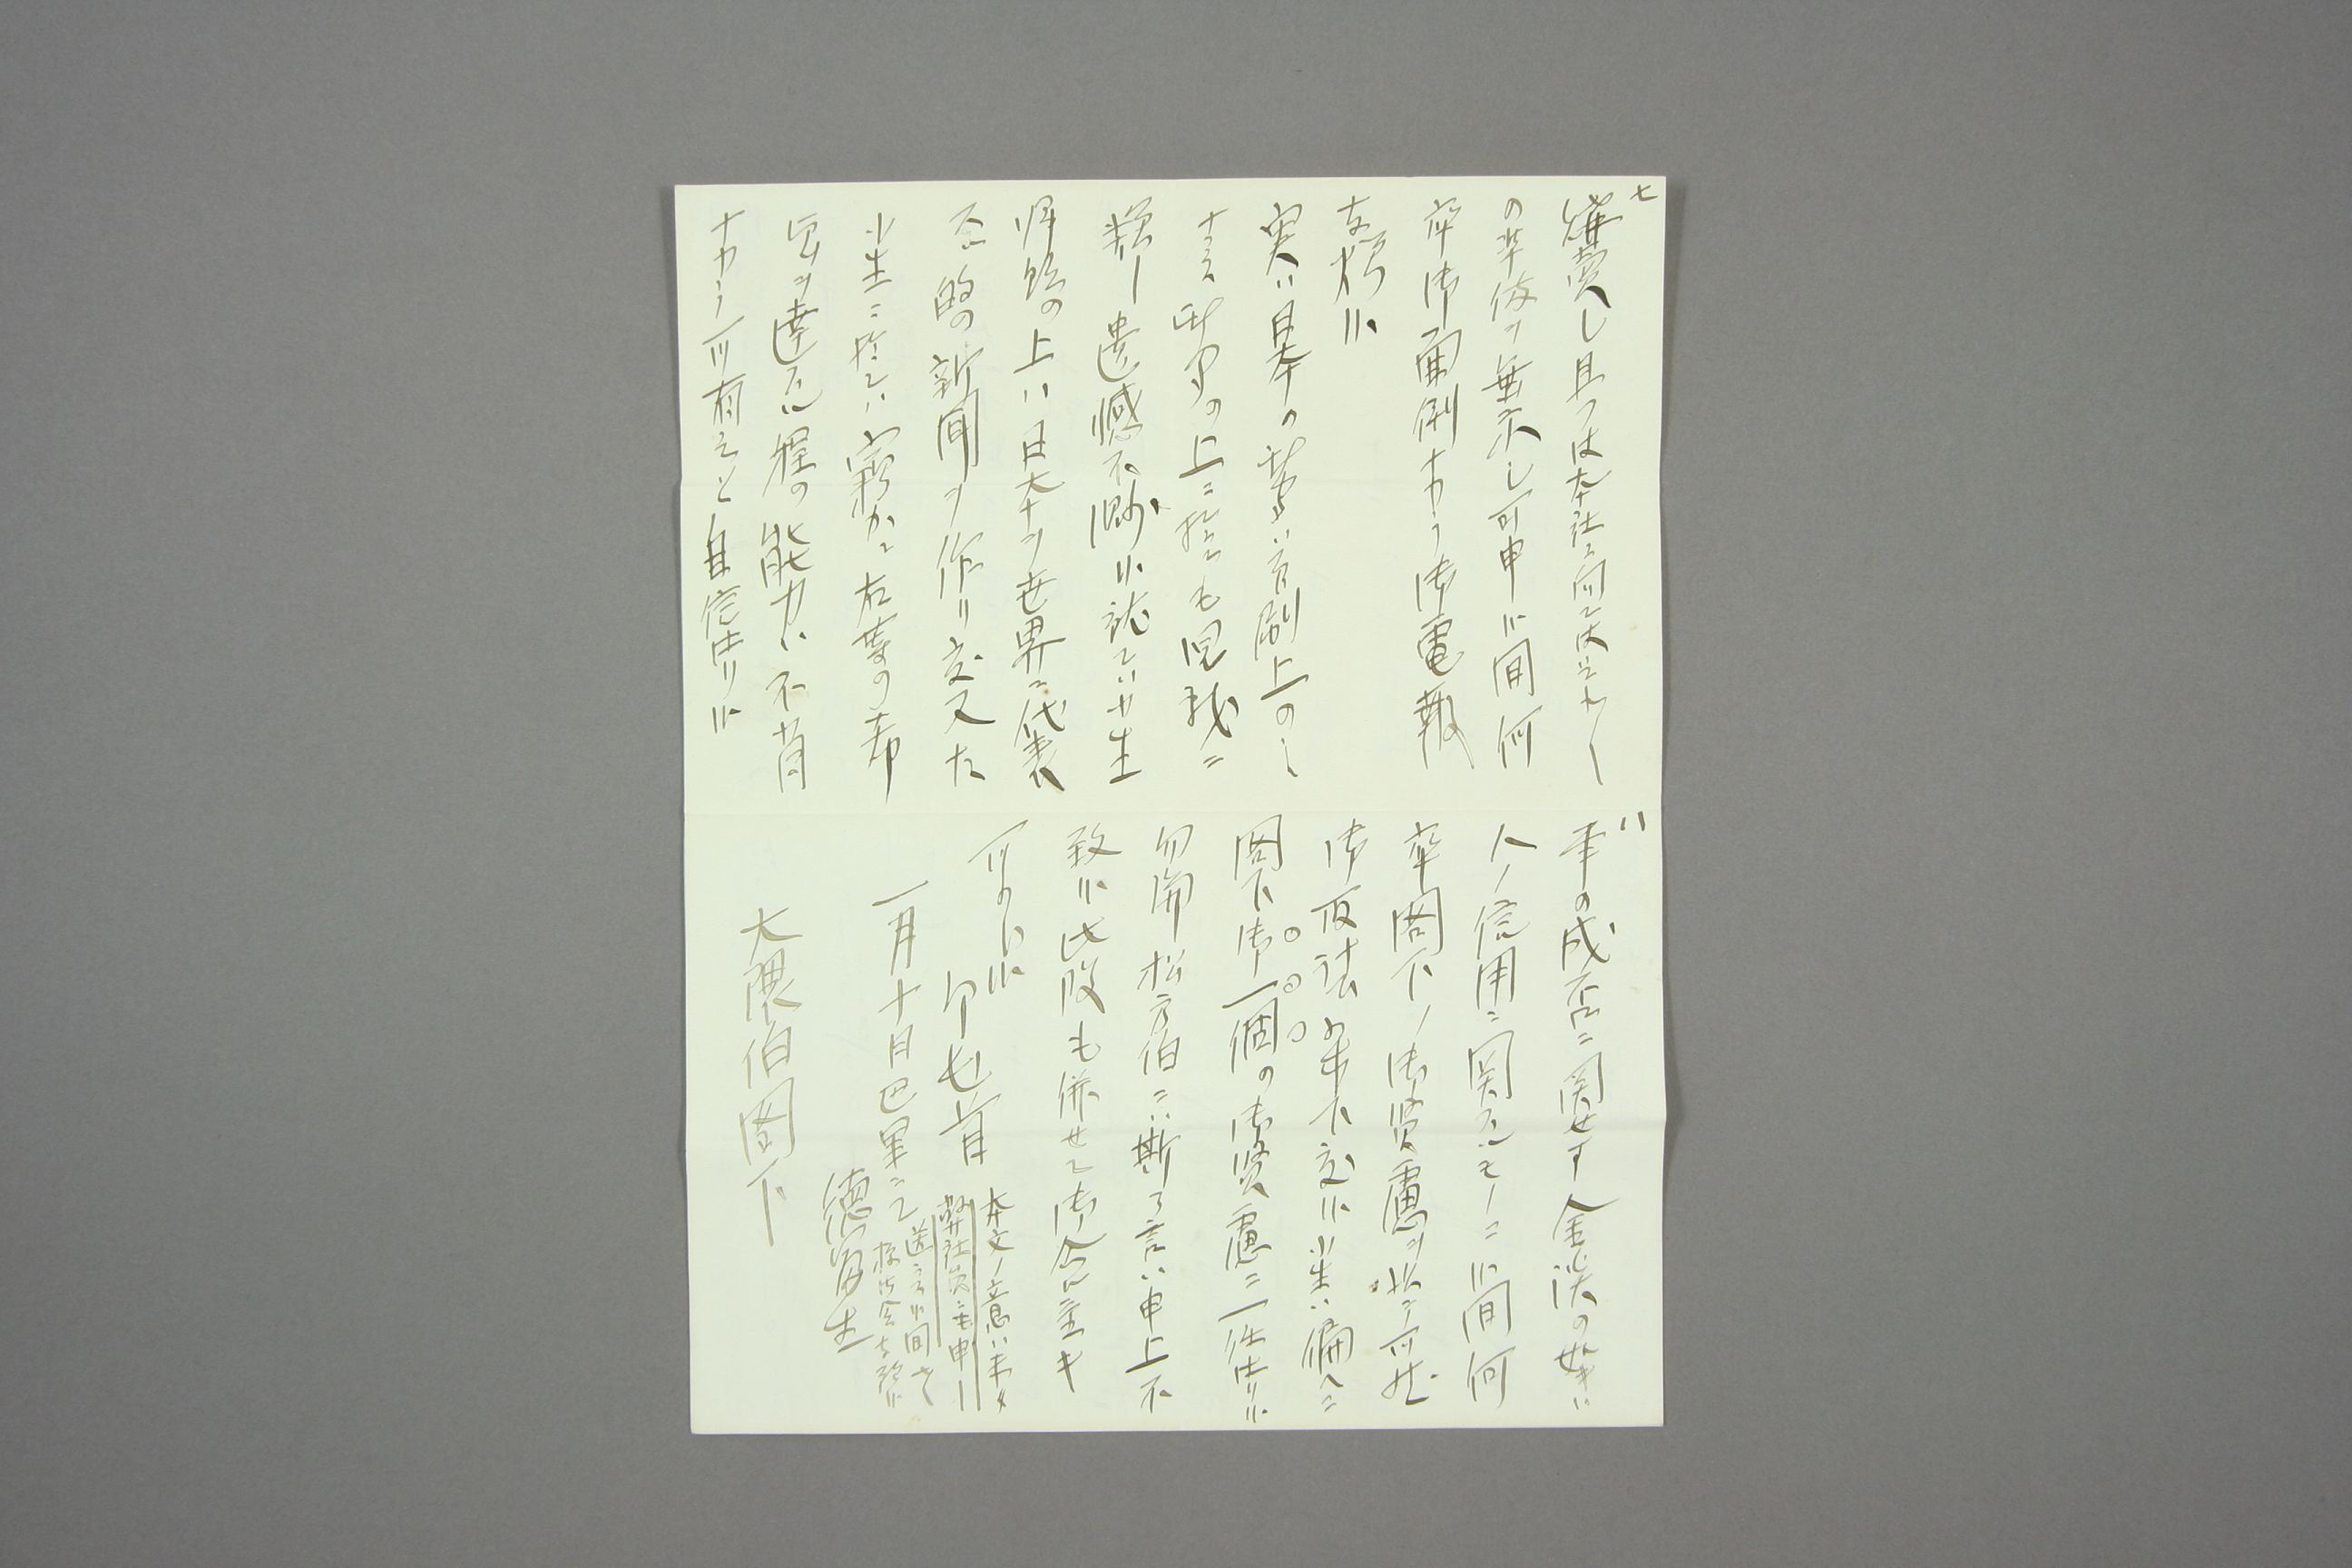 七
購買し且つは本社ニ向て
の準備ヲ無示し可申候間何
卒御面倒ナカラ御電報
奉祈候
実ハ日本の 印刷上のミ
ナラス 上ニ於ても児戯ニ
類し遺憾不尠候就てハ小生
帰朝の上ハ日本ヲ世界ニ代表
する的の新聞ヲ作り度又た
小生ニ於てハ窃かニ右等の希
望ヲ達する程の能力ハ不肖
ナカラ可有之と自信仕り候
八
事の成否ニ関せす金談の
人ノ信用ニ関するモノニ候間何
卒閣下ノ御賢慮ヲ以テ可然
御取計被下度候小生ハ偏へニ
閣下御一個の御賢慮ニ一任仕り候
勿論松方伯ニハ斯る言ハ申上不
致候此段も併せて御含置キ
可被下候
匆々頓首
本文ノ意ハ未タ
弊社員ニモ申し
送らす候間
様御含奉願候
一月十日巴里ニて
徳富生
大隈伯閣下